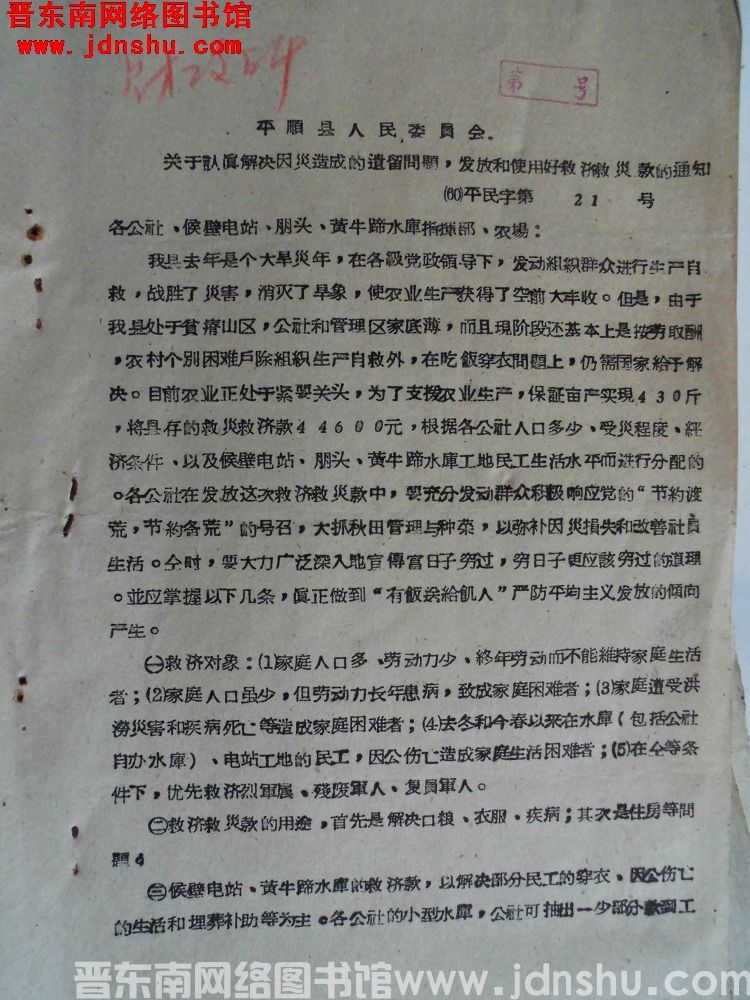 晋东南网络图书馆
www.jdnshu.com
第 号
平顺县人民委員会。
关于認眞解决因災造成的遺留問題,发放和使用好救济救災款的通知
(60)平民字第 21 号
各公社、侯壁电站、朋头、黃牛蹄水庫指揮部、农場:
我县去年是个大旱災年,在各級党政領导下,发动組织群众进行生产自
救,战胜了災害,消灭了旱象,使农业生产获得了空前大丰收。但是,由于
我县处于貧瘠山区,公社和管理区家底薄,而且現阶段还基本上是按劳取酬
,农村个別困难戶除組织生产自救外,在吃飯穿衣問題上,仍需国家給予解
决。目前农业正处于紧要关头,为了支援农业生产,保証亩产实現430斤
,将县存的救災救济款44600元,根据各公社人口多少、受災程度、經
济条件、以及侯壁电站、朋头、黃牛蹄水庫工地民工生活水平而进行分配的
。各公社在发放这次救济救災款中,要充分发动群众积极响应党的“节約渡
荒,节約备荒”的号召,大抓秋田管理与种菜,以弥补因災損失和改善社員
生活。仝时,要大力广泛深入地宣傳富日子穷过,穷日子更应該穷过的道理
。並应掌握以下几条,眞正做到“有飯送給飢人”严防平均主义发放的傾向
产生。
㊀救济对象:(1)家庭人口多、劳动力少、終年劳动而不能維持家庭生活
者;(2)家庭人口虽少,但劳动力长年患病,致成家庭困难者;(3)家庭遭受洪
澇災害和疾病死亡等造成家庭困难者;(4)去冬和今春以来在水庫(包括公社
自办水庫)、电站工地的民工,因公伤亡造成家庭生活困难者;(5)在仝等条
件下,优先救济烈軍属、殘废軍人、复員軍人。
㊁救济救災款的用途,首先是解决口粮、衣服、疾病;其次是住房等問
題。
㊂侯壁电站、黃牛蹄水庫的救济款,以解决部分民工的穿衣、因公伤亡
的生活和埋葬补助等为主。各公社的小型水庫,公社可抽出一少部分款到工
晋东南网络图书馆www.jdnshu.com